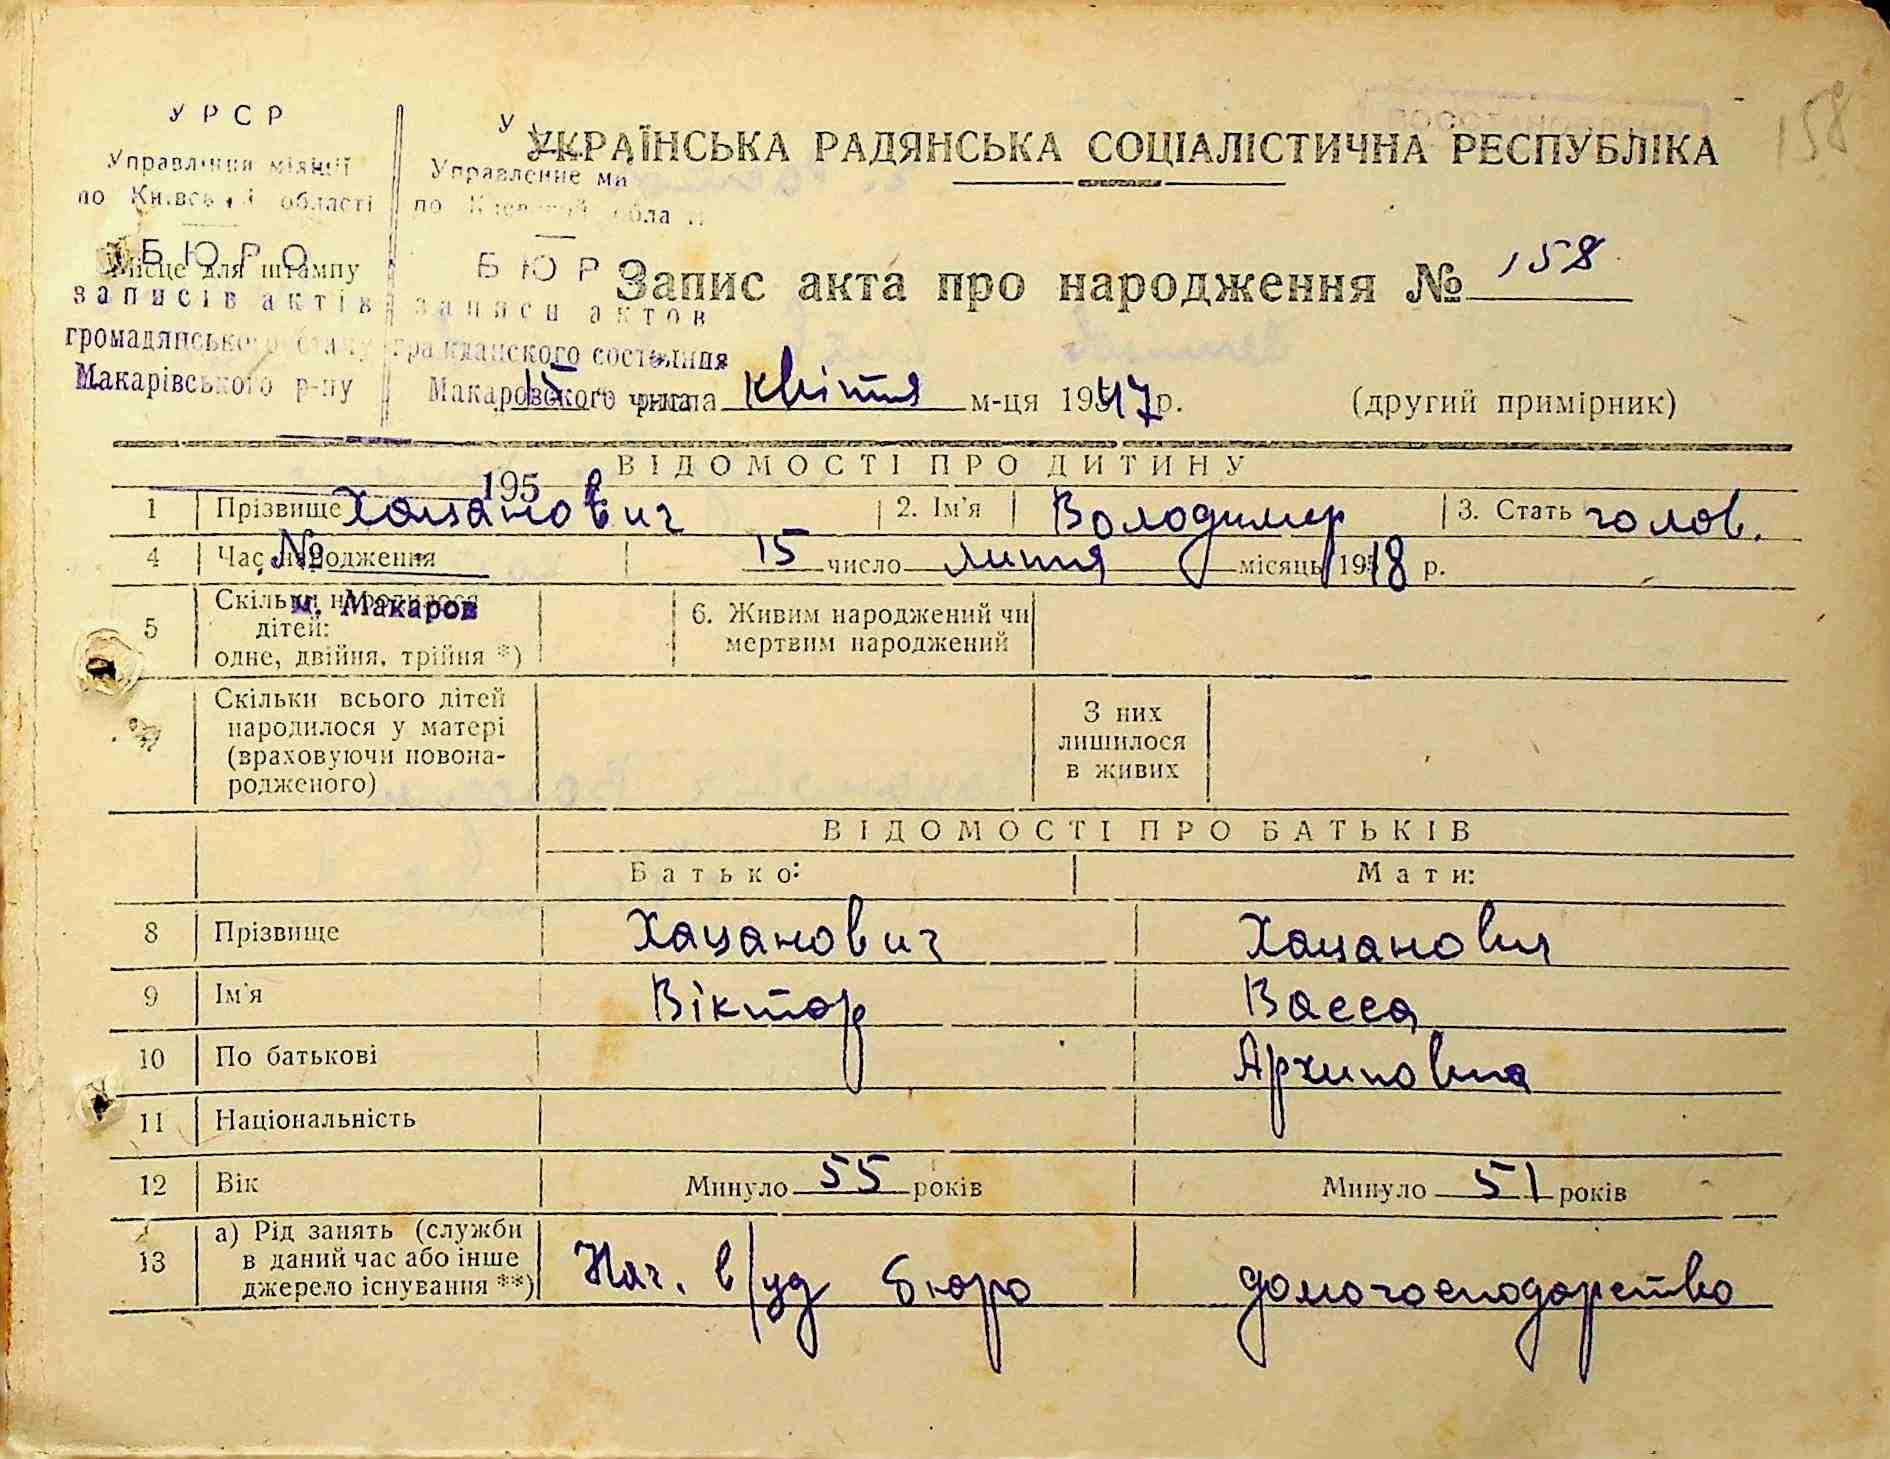 158
УРСР
Управління міліції
по Київській області
БЮРО
записів актів
громадянського стану
Макарівського р-ну
Управление ми
по Киевской обла
БЮР
записи актов
гражданского состояния
Макаровского района
195
№
м. Макаров
Місце для штампу
УКРАЇНСЬКА РАДЯНСЬКА СОЦІАЛІСТИЧНА РЕСПУБЛІКА
Запис акта про народження № 158
15 числа квітня м-ця 1947 р. (другий примірник)
ВІДОМОСТІ ПРО ДИТИНУ
1 Прізвище Хацанович 2. Ім'я Володимир 3. Стать чолов.
4 Час народження 15 число липня місяць 1918 р.
5 Скільки народилося дітей: одне, двійня, трійня *) 6. Живим народжений чи мертвим народжений
Скільки всього дітей народилося у матері (враховуючи новонародженого) З них лишилося в живих
ВІДОМОСТІ ПРО БАТЬКІВ
Батько: Мати:
8 Прізвище Хацанович Хацанович
9 Ім'я Віктор Васса
10 По батькові Архиповна
11 Національність
12 Вік Минуло 55 років Минуло 51 років
13 а) Рід занять (служби в даний час або інше джерело існування **) Нач. в/уд бюро домогосподарство